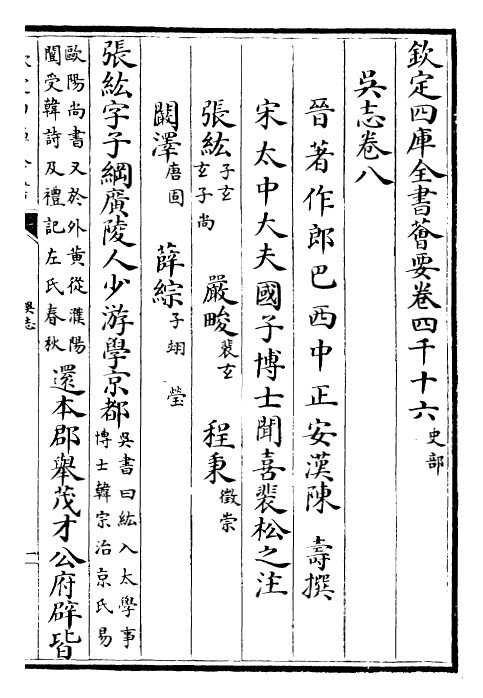 欽定四庫全書薈要卷四千十六 史部
吳志卷八
晉著作郎巴西中正安漢陳 壽撰
宋太中大夫國子博士聞喜裴松之注
張紘 子玄 玄子尚 嚴畯 裴玄 程秉 徵崇
闞澤 唐固 薛綜 子珝 瑩
張紘字子綱廣陵人少游學京都 吳書曰紘入太學事博士韓宗治京氏易
歐陽尚書又於外黃從濮陽闓受韓詩及禮記左氏春秋 還本郡舉茂才公府辟皆
吳志